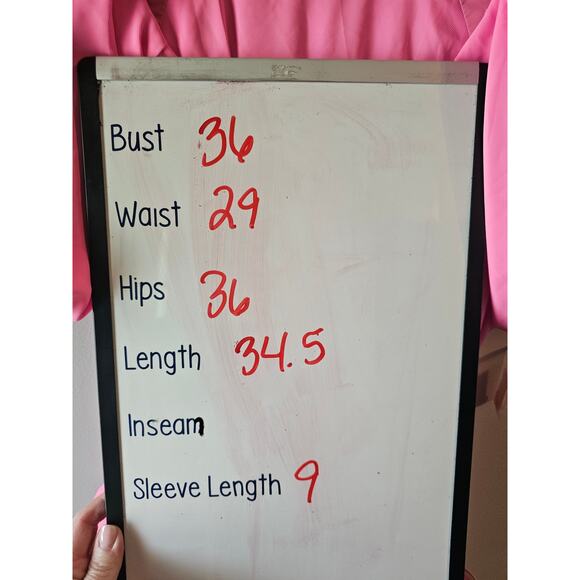 Bust 36
Waist 29
Hips 36
Length 34.5
Inseam
Sleeve Length 9